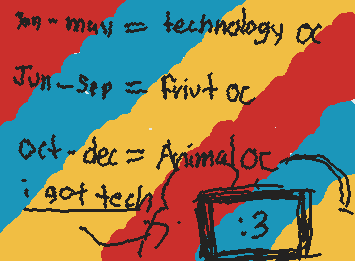 Jan - may = technology oc
Jun - sep = friut oc
oct - dec = Animal oc
i got tech
:3